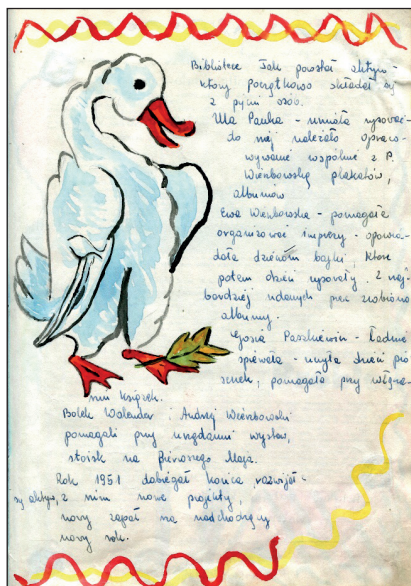 Bibliotece Jak powstał aktyw -
który początkowo składał się
z pięciu osób.
Ula Pauka - umiała rysować -
do niej należało opraco-
wywanie wspólnie z P.
Wierzbowską plakatów,
albumów
Ewa Wierzbowska - pomagała
organizować imprezy - opowia-
dała dzieciom bajki, które
potem dzieci rysowały. Z naj-
bardziej udanych prac zrobiono
albumy.
Gosia Paszkiewicz - ładnie
śpiewała - uczyła dzieci pio
senek, pomagała przy włącza
niu książek.
Bolek Walender i Andrzej Wierzbowski
pomagali przy urządzaniu wystaw,
stoisk na Pierwszego Maja.
Rok 1951 dobiegał końca rozwijał -
się aktyw, z nim nowe projekty,
nowy zapał na nadchodzący
nowy rok.